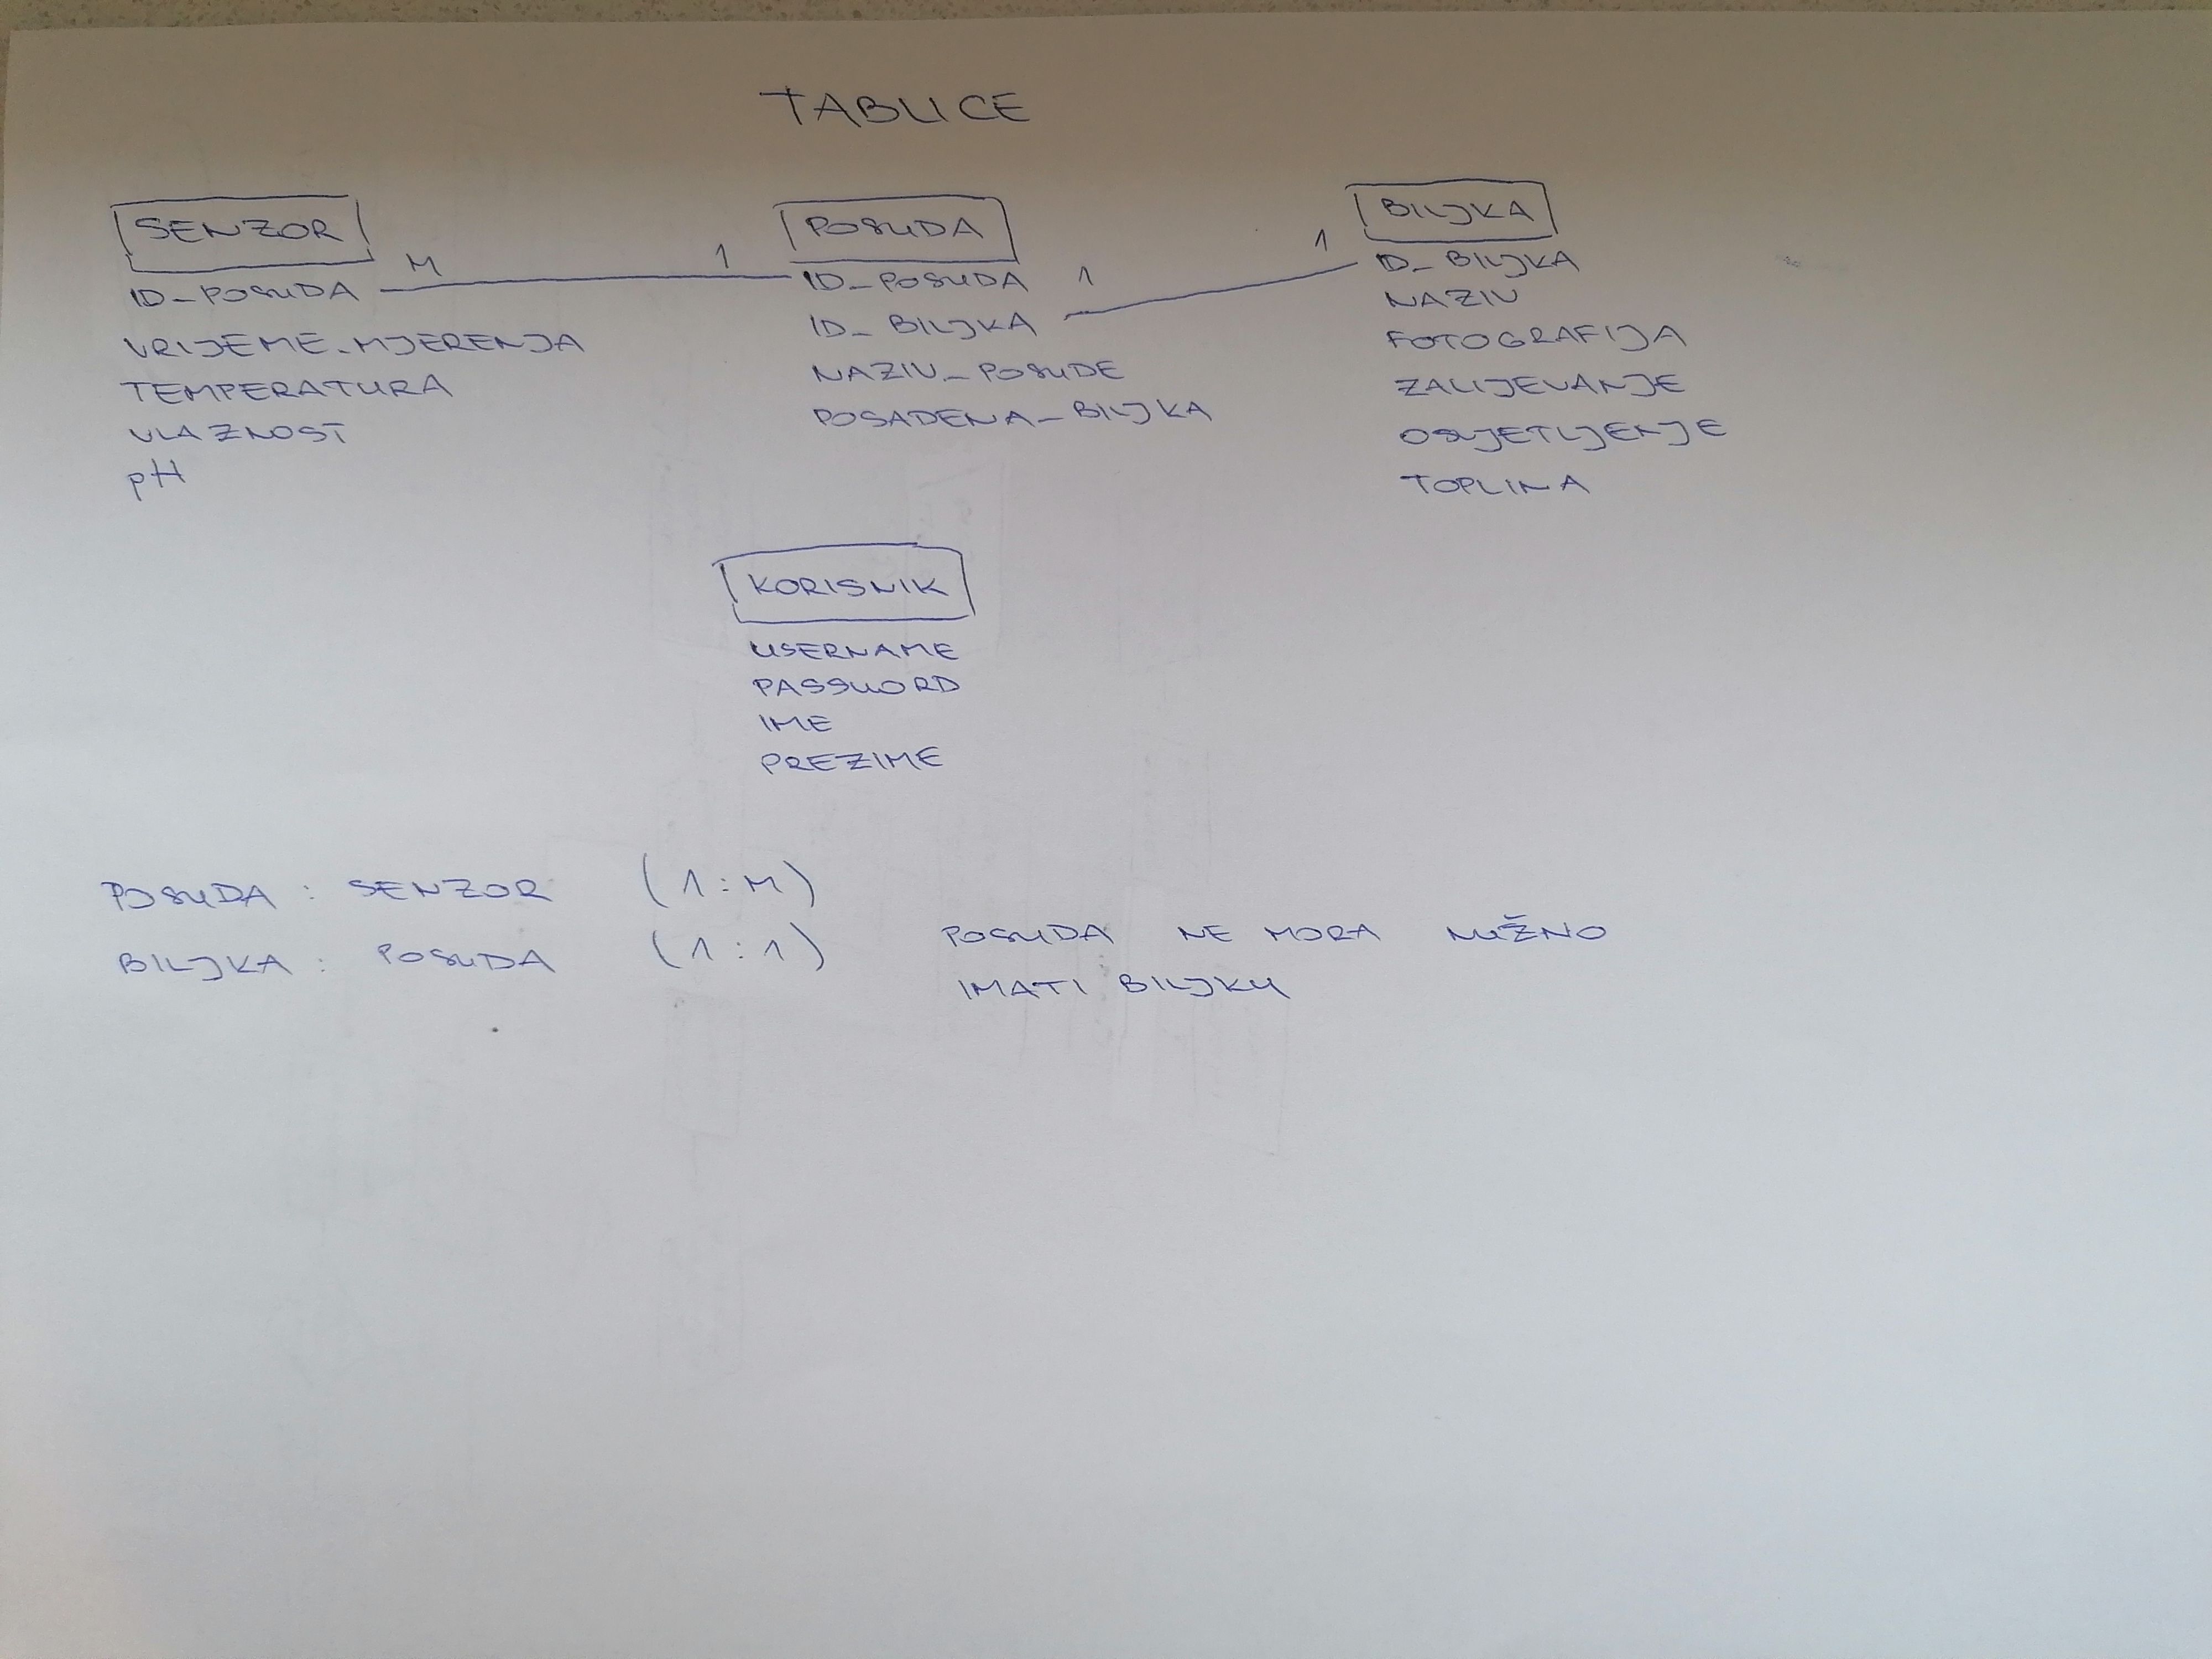 TABLICE
SENZOR
M
ID_POSUDA
VRIJEME_MJERENJA
TEMPERATURA
VLAZNOST
pH
1
POSUDA
ID_POSUDA
1
ID_BILJKA
NAZIV_POSUDE
POSAĐENA_BILJKA
1
BILJKA
ID_BILJKA
NAZIV
FOTOGRAFIJA
ZALIJEVANJE
OSVJETLJENJE
TOPLINA
KORISNIK
USERNAME
PASSWORD
IME
PREZIME
POSUDA : SENZOR (1:M)
BILJKA : POSUDA (1:1)
POSUDA NE MORA NUŽNO
IMATI BILJKU